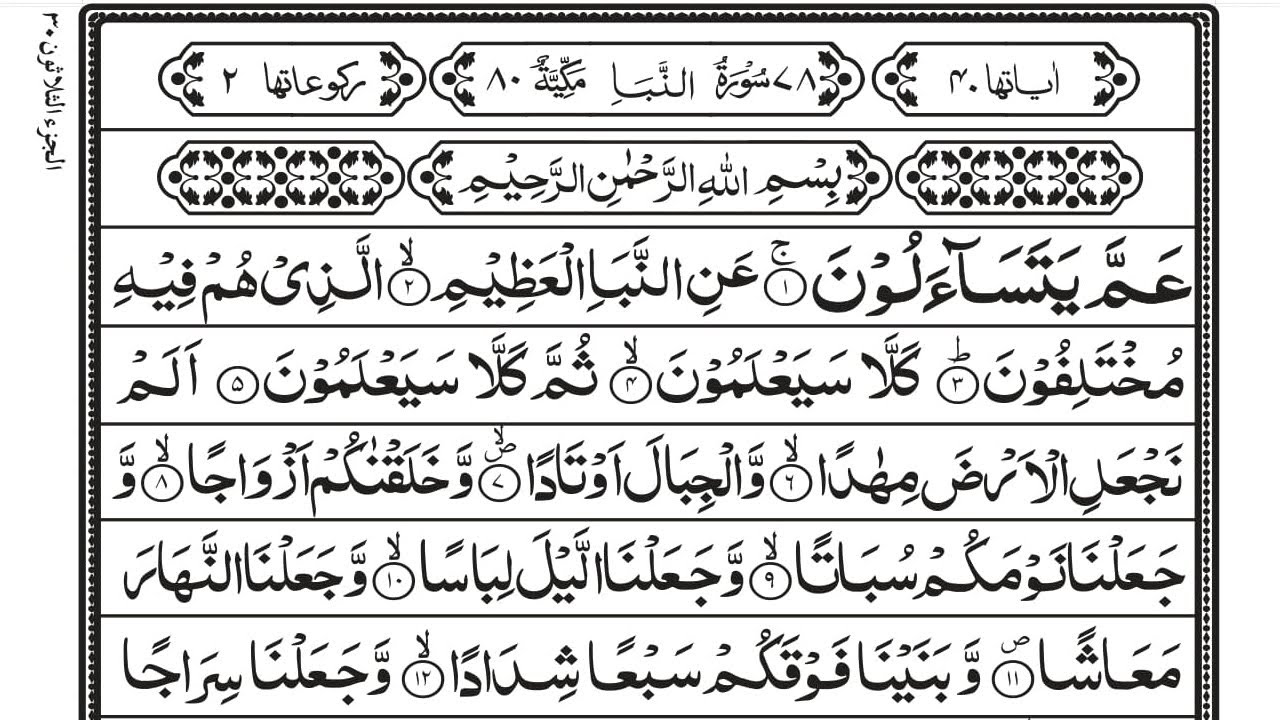 الجزء الثلاثون ۳۰
اٰیاتها ۴۰
۷۸ سُوْرَةُ النَّبَاِ مَكِّیَّةٌ ۸۰
ركوعاتها ۲
بِسْمِ اللهِ الرَّحْمٰنِ الرَّحِیْمِ
عَمَّ یَتَسَآءَلُوْنَ ۚ﴿۱﴾ عَنِ النَّبَاِ الْعَظِیْمِ ۙ﴿۲﴾ الَّذِیْ هُمْ فِیْهِ
مُخْتَلِفُوْنَ ؕ﴿۳﴾ كَلَّا سَیَعْلَمُوْنَ ۙ﴿۴﴾ ثُمَّ كَلَّا سَیَعْلَمُوْنَ ﴿۵﴾ اَلَمْ
نَجْعَلِ الْاَرْضَ مِهٰدًا ۙ﴿۶﴾ وَّالْجِبَالَ اَوْتَادًا ۪ۙ﴿۷﴾ وَّخَلَقْنٰكُمْ اَزْوَاجًا ۙ﴿۸﴾ وَّ
جَعَلْنَا نَوْمَكُمْ سُبَاتًا ۙ﴿۹﴾ وَّجَعَلْنَا الَّیْلَ لِبَاسًا ۙ﴿۱۰﴾ وَّجَعَلْنَا النَّهَارَ
مَعَاشًا ۪﴿۱۱﴾ وَّ بَنَیْنَا فَوْقَكُمْ سَبْعًا شِدَادًا ۙ﴿۱۲﴾ وَّجَعَلْنَا سِرَاجًا